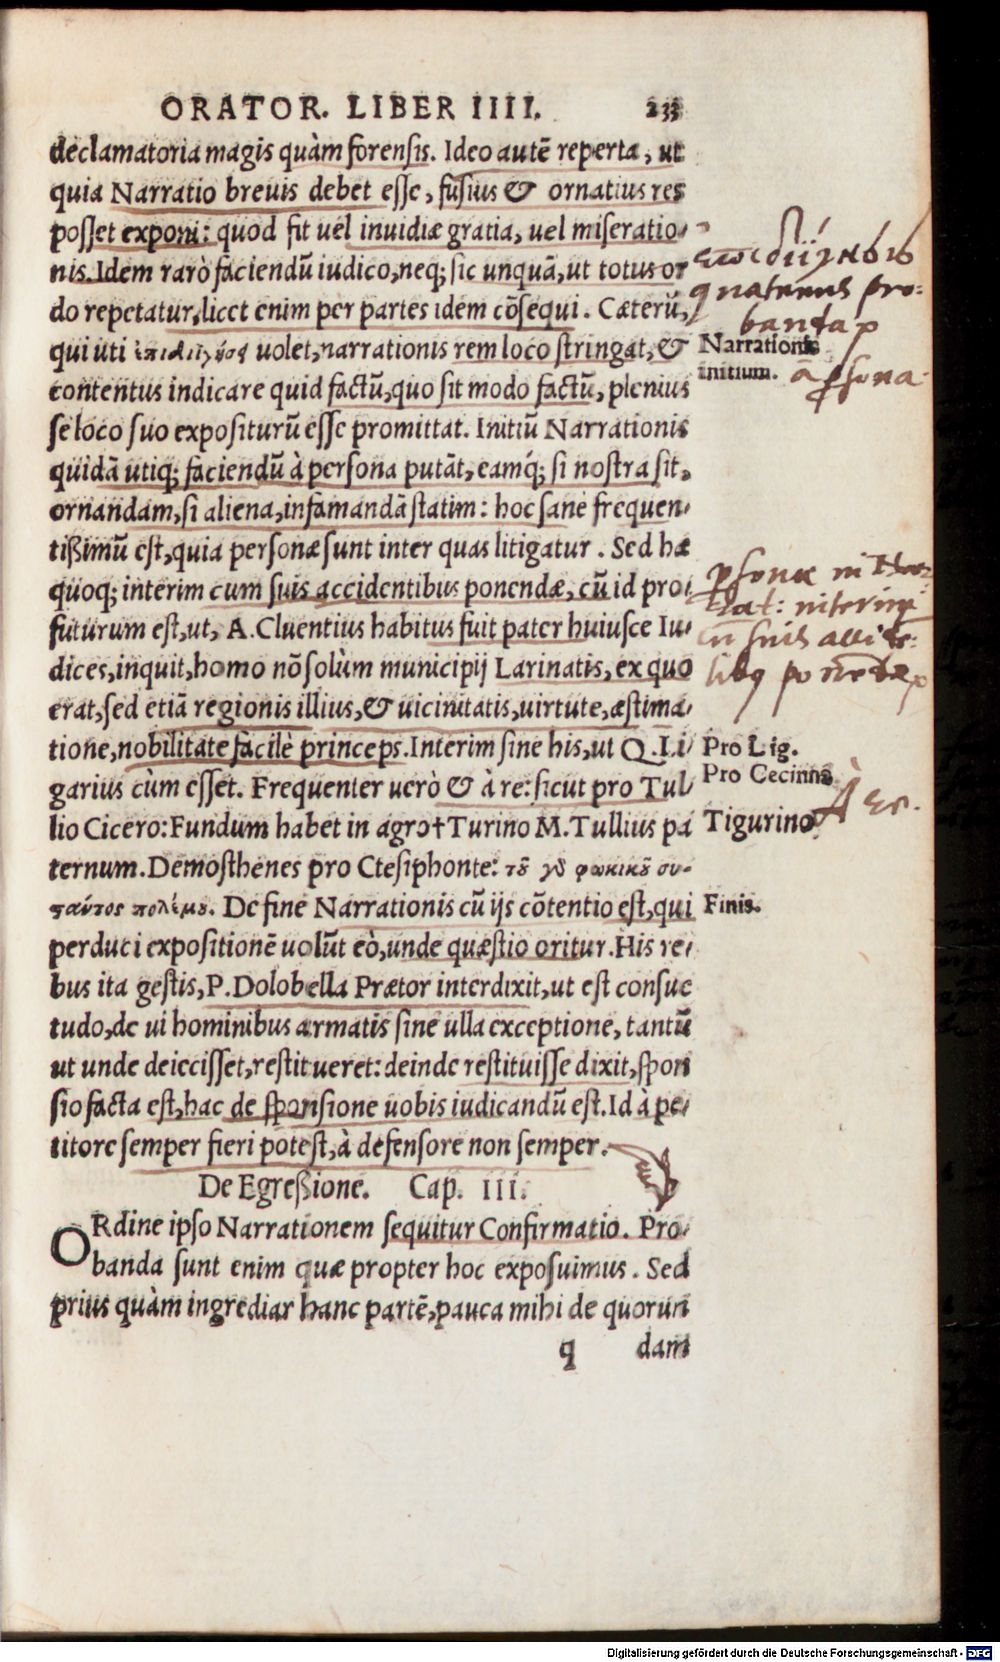 ORATOR. LIBER IIII. 233
declamatoria magis quàm forensis. Ideo autē reperta, ut
quia Narratio breuis debet esse, fusius & ornatius res
posset exponi: quod fit uel inuidiæ gratia, uel miseratio-
nis. Idem rarò faciendū iudico, neq; sic unquā, ut totus or
do repetatur, licet enim per partes idem cōsequi. Cæterū,
qui uti uolet, narrationis rem loco stringat, &
contentus indicare quid factū, quo sit modo factū, plenius
se loco suo expositurū esse promittat. Initiū Narrationis
quidā utiq; faciendū à persona putāt, eamq́; si nostra sit,
ornandam, si aliena, infamandā statim: hoc sane frequen-
tißimū est, quia personæ sunt inter quas litigatur. Sed hæ
quoq; interim cum suis accidentibus ponendæ, cū id pro-
futurum est, ut, A. Cluentius habitus fuit pater huiusce Iu-
dices, inquit, homo nō solùm municipij Larinatis, ex quo
erat, sed etiā regionis illius, & uicinitatis, uirtute, æstima-
tione, nobilitate facilè princeps. Interim sine his, ut Q. Li-
garius cùm esset. Frequenter uerò & à re: sicut pro Tul-
lio Cicero: Fundum habet in agro † Turino M. Tullius pa
ternum. Demosthenes pro Ctesiphonte: τȣ̃ γὸ φωκικȣ̃ συ-
ταύτος πολέμȣ. De fine Narrationis cū ijs cōtentio est, qui
perduci expositionē uolūt eò, unde quæstio oritur. His re-
bus ita gestis, P. Dolobella Prætor interdixit, ut est consue
tudo, de ui hominibus armatis sine ulla exceptione, tantū
ut unde deiecisset, restitueret: deinde restituisse dixit, spon
sio facta est, hac de sponsione uobis iudicandū est. Id à pe-
titore semper fieri potest, à defensore non semper.
De Egreßione. Cap. III.
ORdine ipso Narrationem sequitur Confirmatio. Pro-
banda sunt enim quæ propter hoc exposuimus. Sed
prius quàm ingrediar hanc partē, pauca mihi de quorun
q dam
pro-
Narrationis
initium.
in Nar
rat: interim
cū suis accidē-
Pro Lig.
Pro Cecinna
Tigurino
A
Finis.